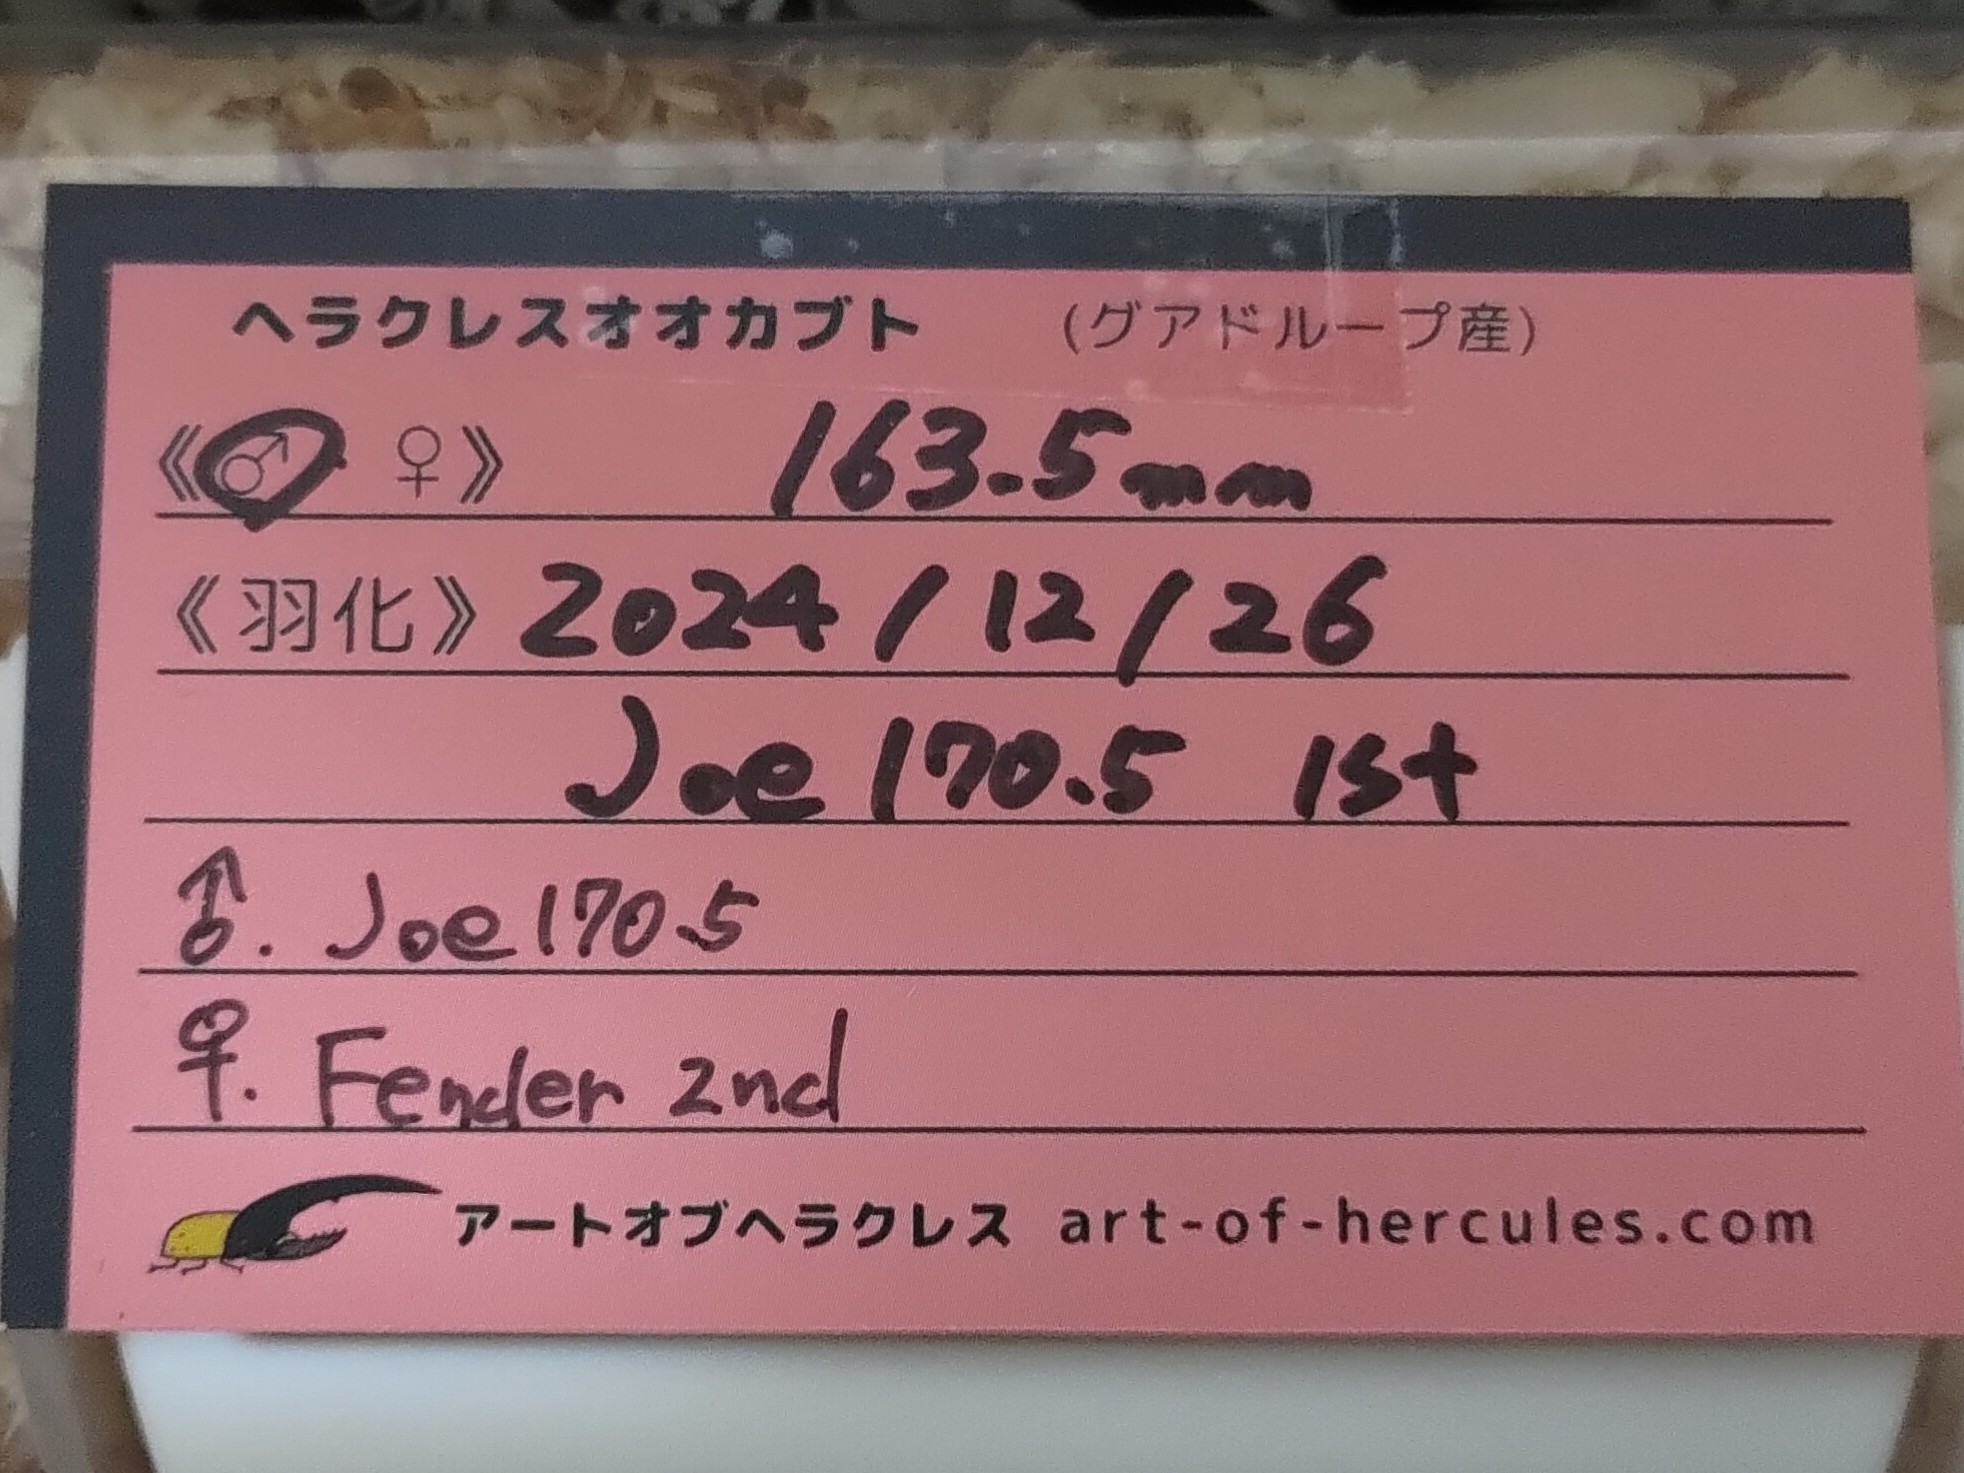 ヘラクレスオオカブト (グアドループ産)
《♂ ♀》 163.5mm
《羽化》 2024/12/26
Joe 170.5 1st
♂. Joe 170.5
♀. Fender 2nd
アートオブヘラクレス art-of-hercules.com